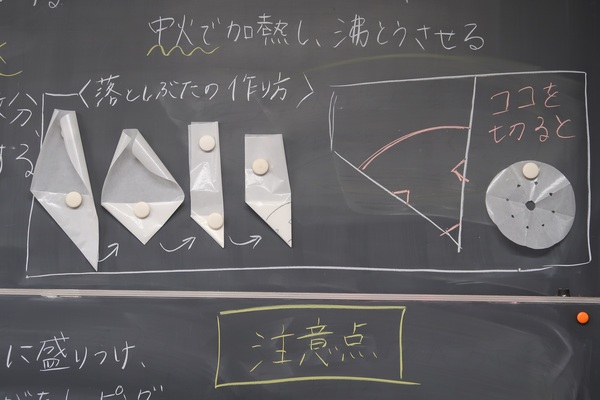 中火で加熱し、沸とうさせる
〈落としぶたの作り方〉
ココを
切ると
分、
する
注意点
に盛りつけ、